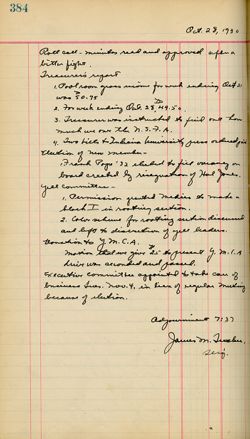 384
Oct. 28, 1930
Roll call - minutes read and approved after a
bitter fight.
Treasurer's report
1. Pool room gross income for week ending Oct 21
was $50.75
2. For week ending Oct. 28 $49.50.
3. Treasurer was instructed to find out how
much we owe the N.S.F.A.
4. Two bills to Indiana University press ordered paid
Election of new member.
Frank Pope '33 elected to fill vacancy on
board created by resignation of Hod Jones.
Yell committee -
1. Permission granted Medics to make a
block I in rooting section.
2. Color scheme for rooting section discussed
and left to discretion of yell leaders.
Donation to Y.M.C.A.
Motion that we give $25 to present Y.M.C.A
drive was seconded and passed.
Executive committee appointed to take care of
business Tues. Nov. 4, in lieu of regular meeting
because of election.
Adjournment 7:37
James M.
Secy.